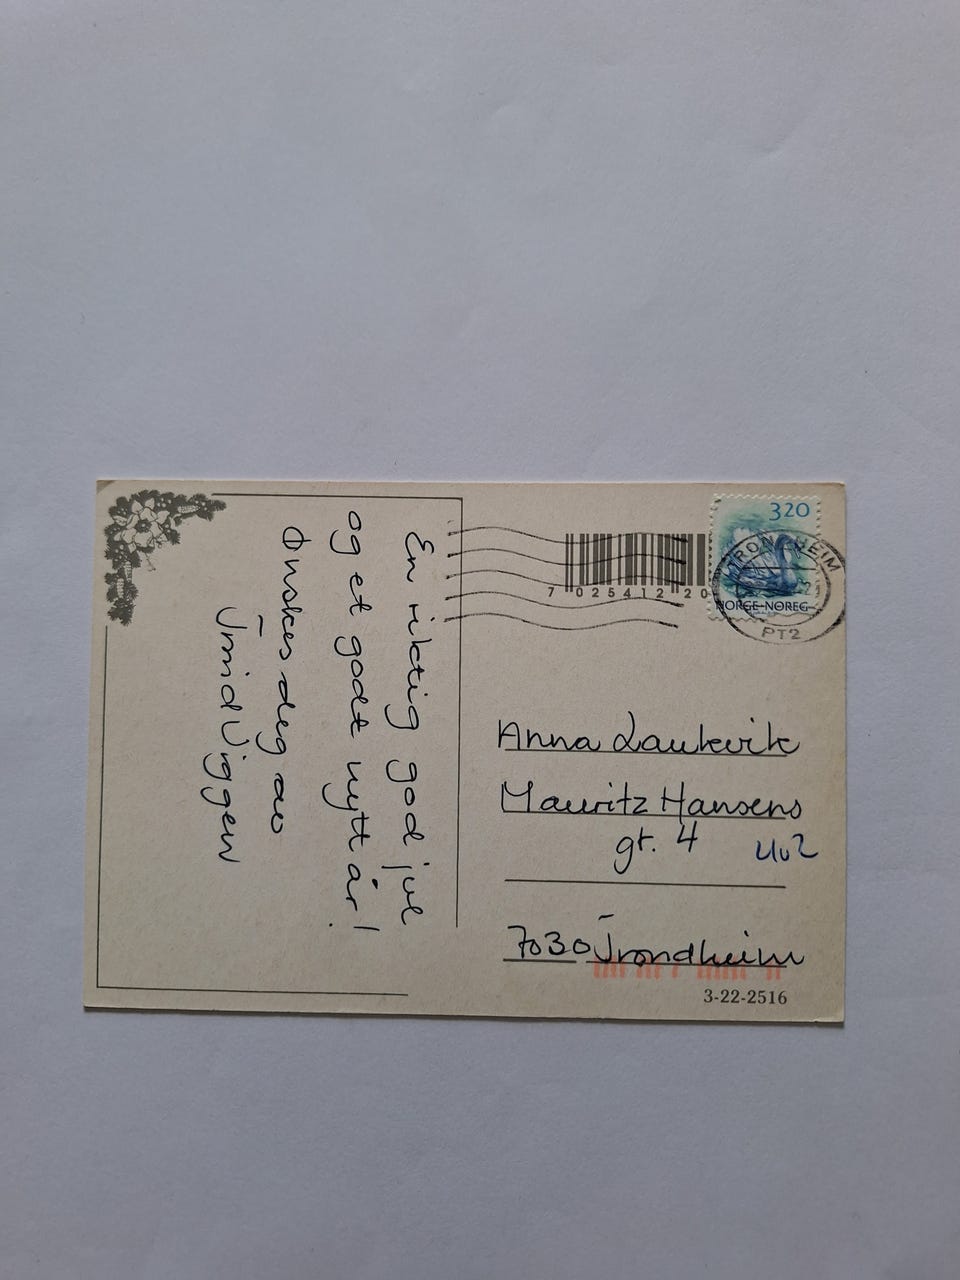 En riktig god jul
og et godt nytt år!
Ønskes deg av
Trond Viggen
3 20
NORGE-NOREG
TRONDHEIM
PT2
7 025412 20
Anna Laukvik
Mauritz Hansens
gt. 4
7030 Trondheim
3-22-2516